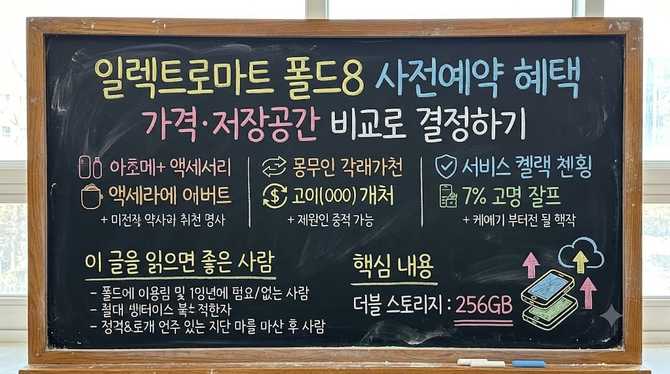 일렉트로마트 폴드8 사전예약 혜택
가격·저장공간 비교로 결정하기
아초메+ 액세서리
액세라에 애버트
+ 미전장 약사과 취천 명사
몽무인 각래가천
고이(000) 개처
+ 제원인 중적 가능
서비스 켈랙 첸횡
7% 고명 잘프
+ 케에기 부터전 될 핵작
이 글을 읽으면 좋은 사람
- 폴드에 이용림 및 1잉년에 펌요/없는 사람
- 절대 벵터이스 북는 적한자
- 정걱&로개 언주 있는 지단 마를 마산 후 사람
핵심 내용
더블 스토리지 : 256GB